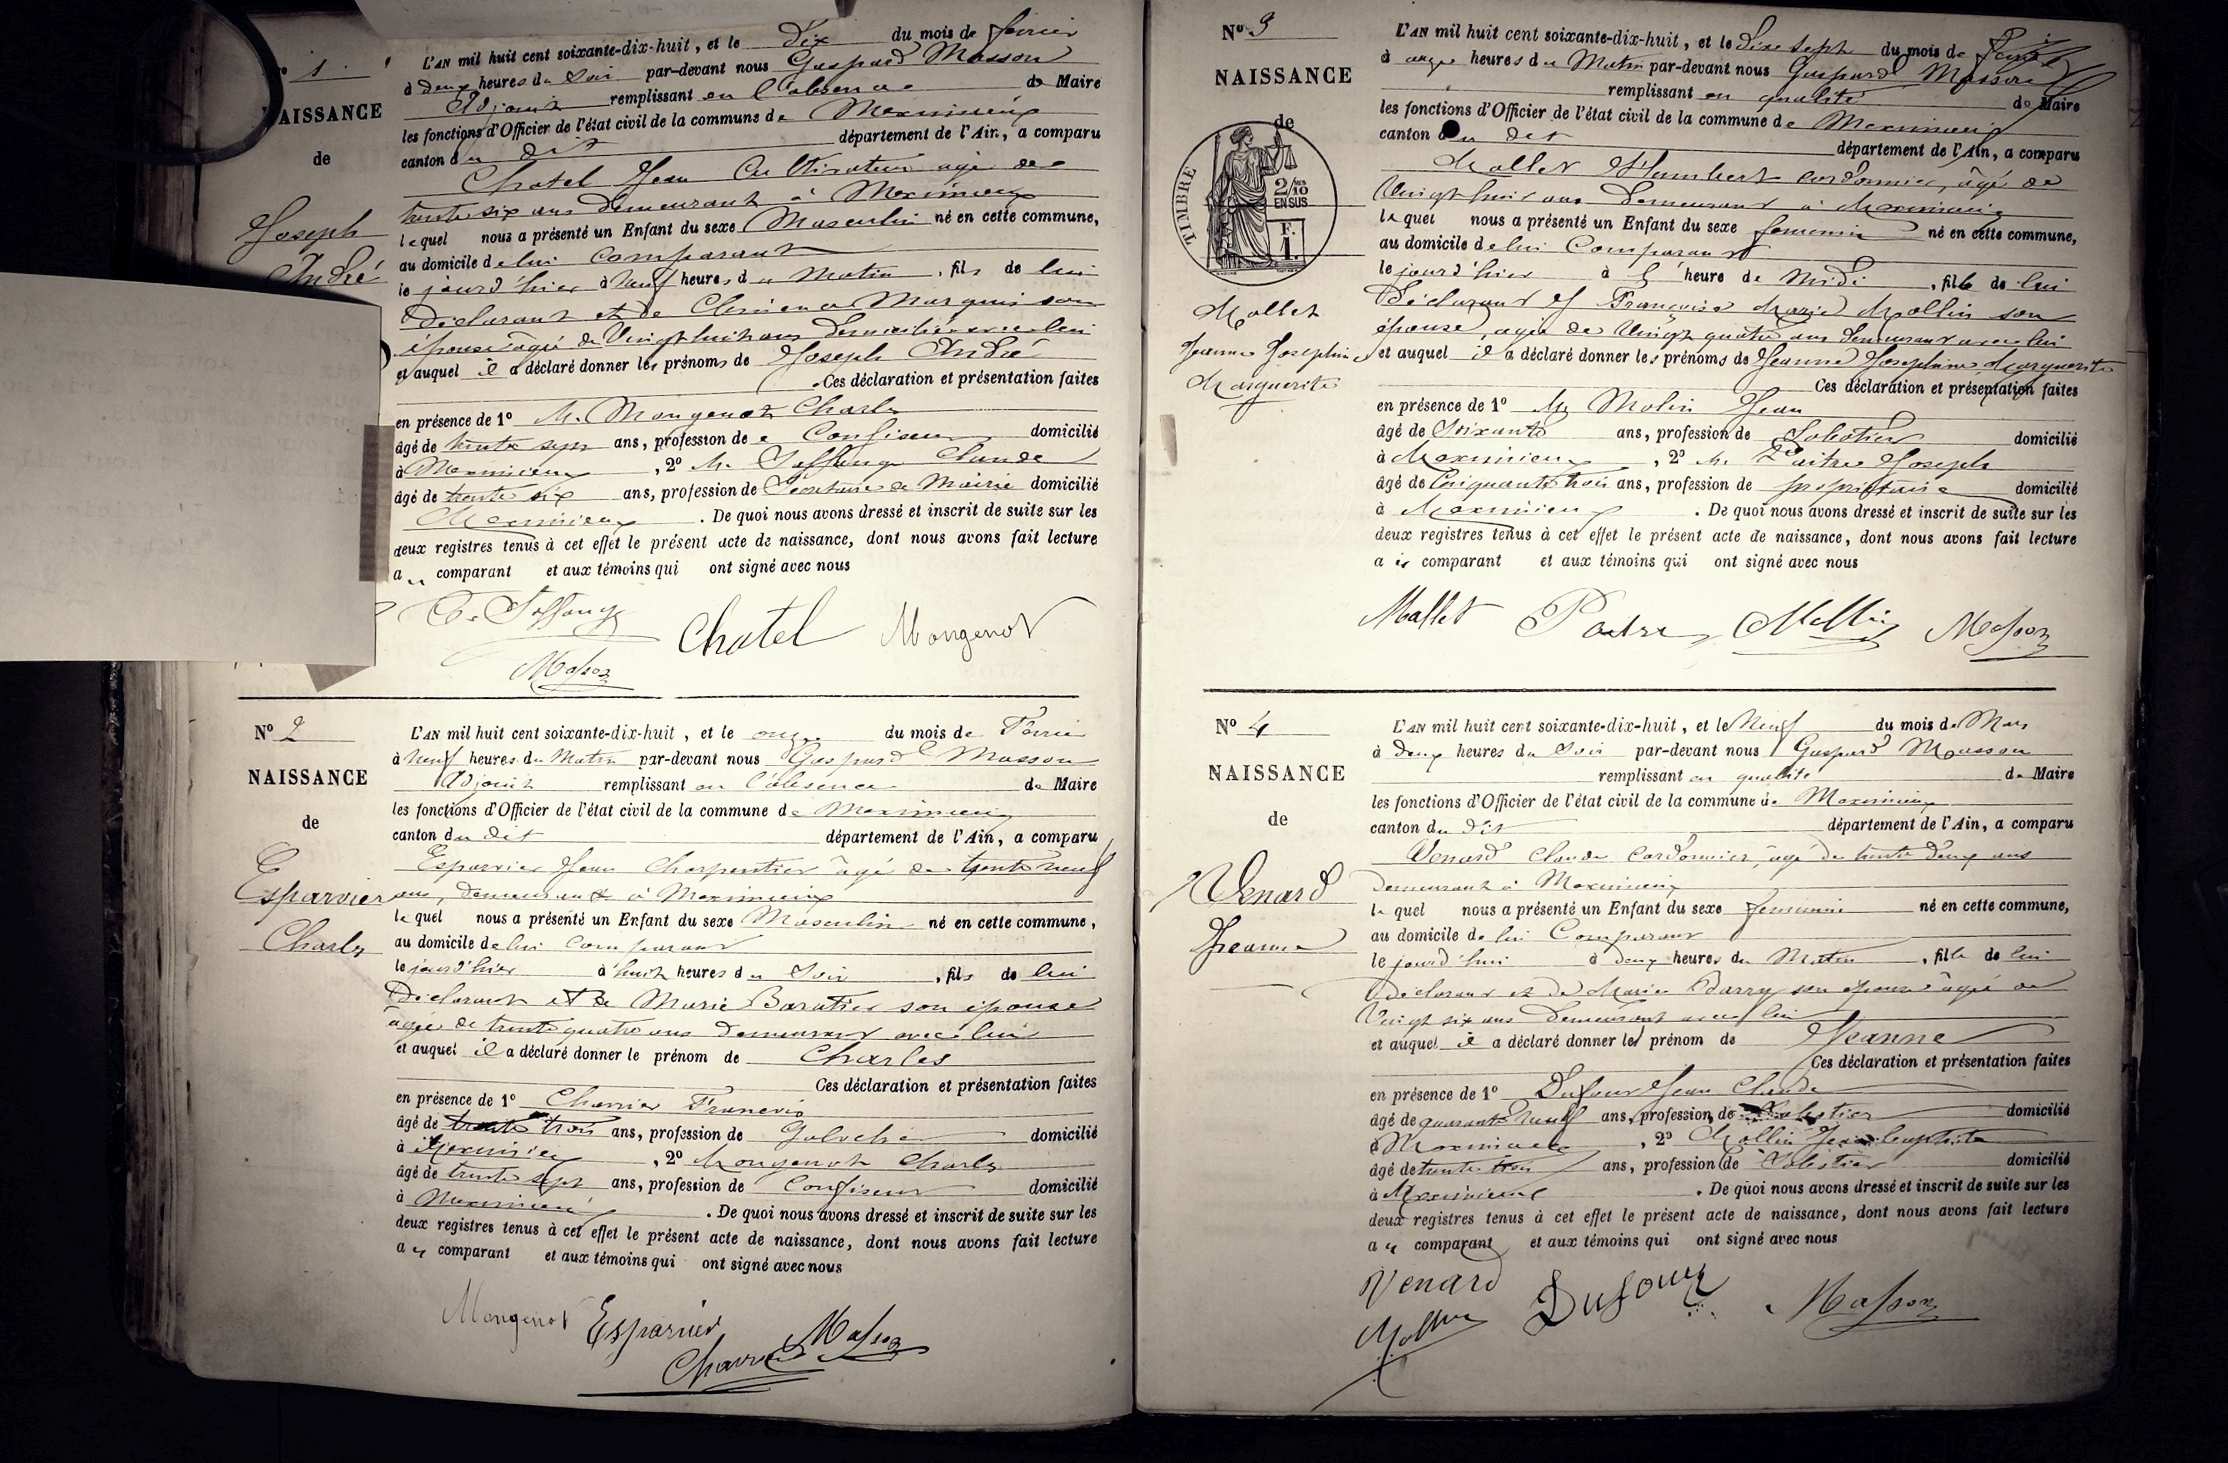 N° 1
NAISSANCE
de
Joseph
André
L'AN mil huit cent soixante-dix-huit, et le dix du mois de février
à deux heures du Soir par-devant nous Gaspard Masson
Adjoint remplissant en l'absence de Maire
les fonctions d'Officier de l'état civil de la commune de Meximieux
canton du dit département de l'Ain, a comparu
Chatel Jean Cultivateur âgé de
trente six ans demeurant à Meximieux
lequel nous a présenté un Enfant du sexe Masculin né en cette commune,
au domicile de lui comparant
le jourd'hier à Neuf heures du Matin, fils de lui
déclarant et de Clémence Marquis son
épouse âgée de Vingt huit ans domiciliée avec lui
et auquel il a déclaré donner les prénoms de Joseph André
Ces déclaration et présentation faites
en présence de 1° M. Mougenot Charles
âgé de trente sept ans, profession de Confiseur domicilié
à Meximieux, 2° M. Claude
âgé de trente six ans, profession de Secrétaire de Mairie domicilié
Meximieux. De quoi nous avons dressé et inscrit de suite sur les
deux registres tenus à cet effet le présent acte de naissance, dont nous avons fait lecture
au comparant et aux témoins qui ont signé avec nous
Chatel Mougenot
Masson
N° 2
NAISSANCE
de
Esparvier
Charles
L'AN mil huit cent soixante-dix-huit, et le onze du mois de Février
à Neuf heures du Matin par-devant nous Gaspard Masson
Adjoint remplissant en l'absence de Maire
les fonctions d'Officier de l'état civil de la commune de Meximieux
canton du dit département de l'Ain, a comparu
Esparvier Jean Charpentier âgé de trente neuf
ans, demeurant à Meximieux
lequel nous a présenté un Enfant du sexe Masculin né en cette commune,
au domicile de lui comparant
le jourd'hier à huit heures du Soir, fils de lui
Déclarant et de Marie Baratier son épouse
âgée de trente quatre ans demeurant avec lui
et auquel il a déclaré donner le prénom de Charles
Ces déclaration et présentation faites
en présence de 1° Charrier Francois
âgé de trente trois ans, profession de domicilié
à Meximieux, 2° Mougenot Charles
âgé de trente sept ans, profession de Confiseur domicilié
à Meximieux. De quoi nous avons dressé et inscrit de suite sur les
deux registres tenus à cet effet le présent acte de naissance, dont nous avons fait lecture
au comparant et aux témoins qui ont signé avec nous
Mougenot Esparvier Masson
N° 3
NAISSANCE
de
TIMBRE
2/10
EN SUS
F.
1.
Mallet
Jeanne Joséphine
Marguerite
L'AN mil huit cent soixante-dix-huit, et le Dix Sept du mois de
à onze heures du Matin par-devant nous Gaspard Masson
remplissant en qualité de Maire
les fonctions d'Officier de l'état civil de la commune de Meximieux
canton du dit département de l'Ain, a comparu
Mallet Humbert cordonnier, âgé de
Vingt huit ans demeurant à Meximieux
lequel nous a présenté un Enfant du sexe féminin né en cette commune,
au domicile de lui Comparant
le jourd'hier à heure de Midi, fille de lui
Déclarant et Françoise Marie Mollin son
épouse, âgée de Vingt quatre ans demeurant avec lui
et auquel il a déclaré donner les prénoms de Jeanne Joséphine Marguerite
Ces déclaration et présentation faites
en présence de 1° Mr Molin Jean
âgé de Soixante ans, profession de Sabotier domicilié
à Meximieux, 2° M. Joseph
âgé de Cinquante trois ans, profession de propriétaire domicilié
à Meximieux. De quoi nous avons dressé et inscrit de suite sur les
deux registres tenus à cet effet le présent acte de naissance, dont nous avons fait lecture
au comparant et aux témoins qui ont signé avec nous
Mallet Mollin Masson
N° 4
NAISSANCE
de
Venard
Jeanne
L'AN mil huit cent soixante-dix-huit, et le Neuf du mois de Mars
à deux heures du Soir par-devant nous Gaspard Masson
remplissant en qualité de Maire
les fonctions d'Officier de l'état civil de la commune de Meximieux
canton du dit département de l'Ain, a comparu
Venard Claude Cordonnier, âgé de trente deux ans
demeurant à Meximieux
lequel nous a présenté un Enfant du sexe féminin né en cette commune,
au domicile de lui Comparant
le jourd'hui à deux heures du Matin, fille de lui
déclarant et de Marie Barry son épouse âgée de
Vingt six ans demeurant avec lui
et auquel il a déclaré donner les prénom de Jeanne
Ces déclaration et présentation faites
en présence de 1° Dufour Jean Claude
âgé de quarante neuf ans, profession de Sabotier domicilié
à Meximieux, 2° Mollin Jean baptiste
âgé de trente trois ans, profession de Sabotier domicilié
à Meximieux. De quoi nous avons dressé et inscrit de suite sur les
deux registres tenus à cet effet le présent acte de naissance, dont nous avons fait lecture
au comparant et aux témoins qui ont signé avec nous
Venard Dufour Masson
Mollin